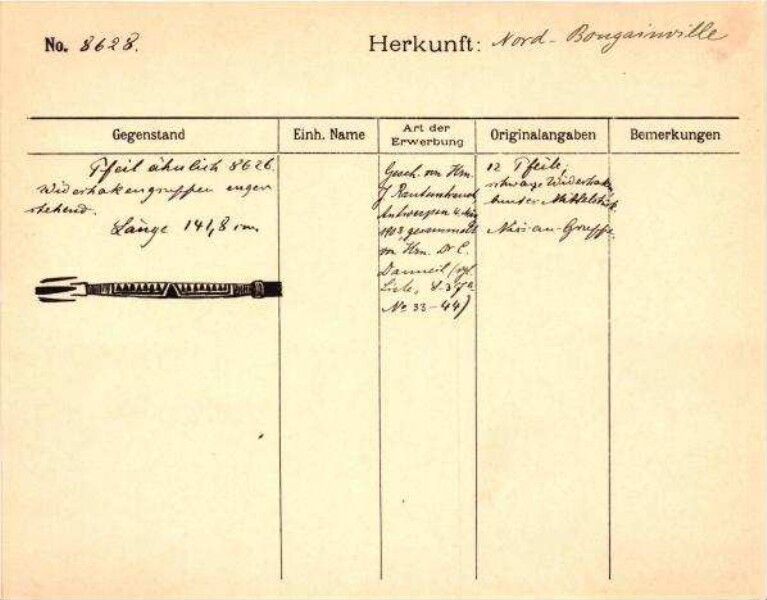 No. 8628.
Herkunft: Nord-Bougainville
Gegenstand
Einh. Name
Art der Erwerbung
Originalangaben
Bemerkungen
Pfeil ähnlich 8626.
Widerhakengruppen enger
stehend.
Länge 141,8 cm
Gesch. von Hrn.
J. Rautenstrauch
Antwerpen 4.
1903 gesammelt
von Hrn. Dr C.
Danneil (vgl.
Liste,
No 33-44)
12 Pfeile,
schwarze Widerhak.
bunter Mittelstück.
Nissan-Gruppe.